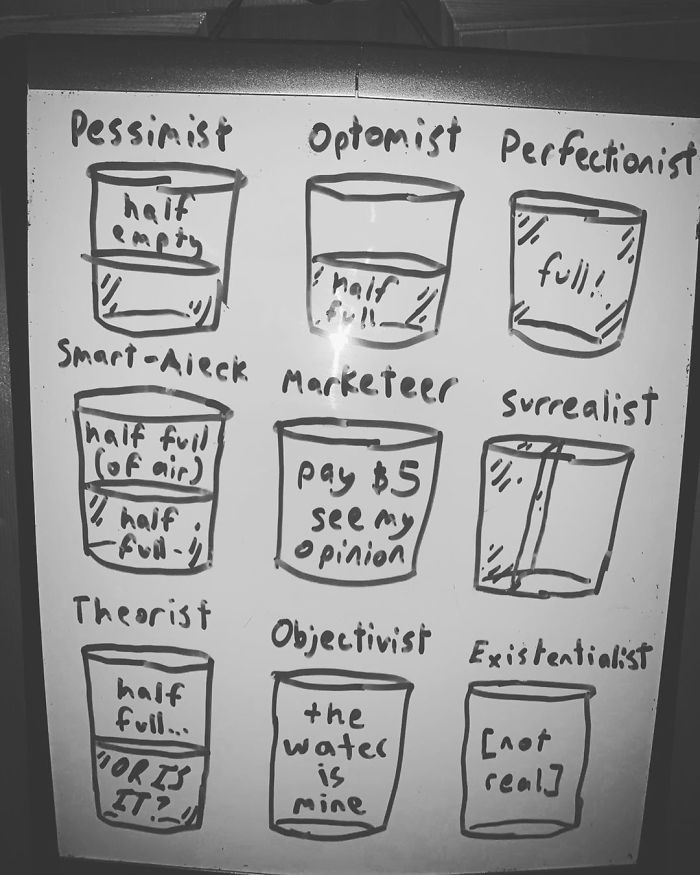 Pessimist
half
empty
Optomist
half
full
Perfectionist
full!
Smart-Aleck
half full
(of air)
half
full
Marketeer
pay $5
see my
opinion
Surrealist
Theorist
half
full...
"OR IS
IT?"
Objectivist
the
water
is
mine
Existentialist
[not
real]